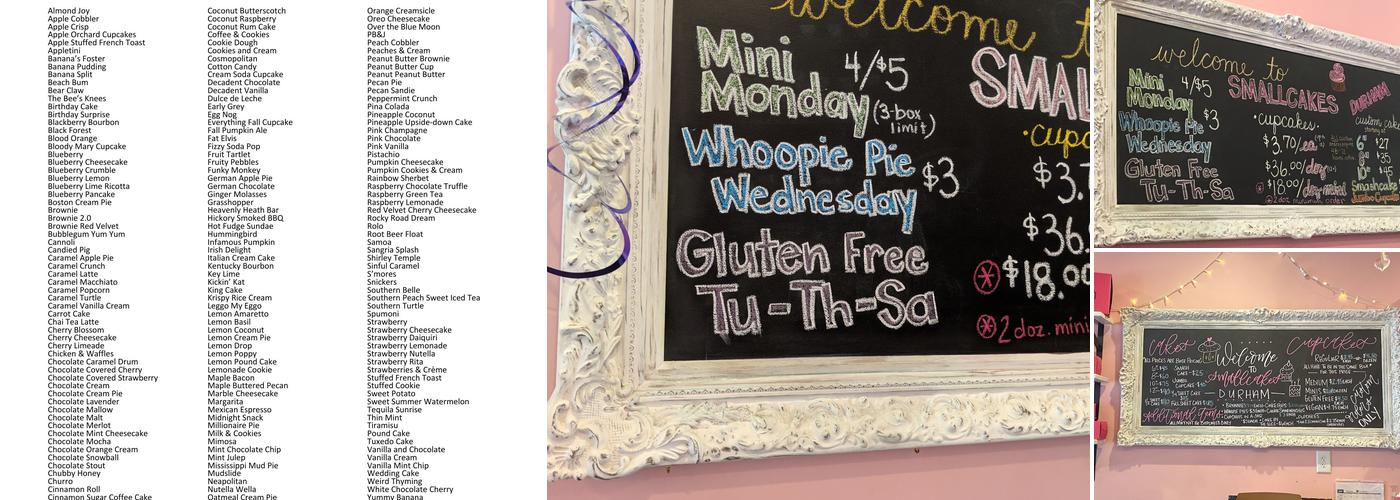 Almond Joy
Apple Cobbler
Apple Crisp
Apple Orchard Cupcakes
Apple Stuffed French Toast
Appletini
Banana's Foster
Banana Pudding
Banana Split
Beach Bum
Bear Claw
The Bee's Knees
Birthday Cake
Birthday Surprise
Blackberry Bourbon
Black Forest
Blood Orange
Bloody Mary Cupcake
Blueberry
Blueberry Cheesecake
Blueberry Crumble
Blueberry Lemon
Blueberry Lime Ricotta
Blueberry Pancake
Boston Cream Pie
Brownie
Brownie 2.0
Brownie Red Velvet
Bubblegum Yum Yum
Cannoli
Candied Pig
Caramel Apple Pie
Caramel Crunch
Caramel Latte
Caramel Macchiato
Caramel Popcorn
Caramel Turtle
Caramel Vanilla Cream
Carrot Cake
Chai Tea Latte
Cherry Blossom
Cherry Cheesecake
Cherry Limeade
Chicken & Waffles
Chocolate Caramel Drum
Chocolate Covered Cherry
Chocolate Covered Strawberry
Chocolate Cream
Chocolate Cream Pie
Chocolate Lavender
Chocolate Mallow
Chocolate Malt
Chocolate Merlot
Chocolate Mint Cheesecake
Chocolate Mocha
Chocolate Orange Cream
Chocolate Snowball
Chocolate Stout
Chubby Honey
Churro
Cinnamon Roll
Cinnamon Sugar Coffee Cake
Coconut Butterscotch
Coconut Raspberry
Coconut Rum Cake
Coffee & Cookies
Cookie Dough
Cookies and Cream
Cosmopolitan
Cotton Candy
Cream Soda Cupcake
Decadent Chocolate
Decadent Vanilla
Dulce de Leche
Early Grey
Egg Nog
Everything Fall Cupcake
Fall Pumpkin Ale
Fat Elvis
Fizzy Soda Pop
Fruit Tartlet
Fruity Pebbles
Funky Monkey
German Apple Pie
German Chocolate
Ginger Molasses
Grasshopper
Heavenly Heath Bar
Hickory Smoked BBQ
Hot Fudge Sundae
Hummingbird
Infamous Pumpkin
Irish Delight
Italian Cream Cake
Kentucky Bourbon
Key Lime
Kickin' Kat
King Cake
Krispy Rice Cream
Leggo My Eggo
Lemon Amaretto
Lemon Basil
Lemon Coconut
Lemon Cream Pie
Lemon Drop
Lemon Poppy
Lemon Pound Cake
Lemonade Cookie
Maple Bacon
Maple Buttered Pecan
Marble Cheesecake
Margarita
Mexican Espresso
Midnight Snack
Millionaire Pie
Milk & Cookies
Mimosa
Mint Chocolate Chip
Mint Julep
Mississippi Mud Pie
Mudslide
Neapolitan
Nutella Wella
Oatmeal Cream Pie
Orange Creamsicle
Oreo Cheesecake
Over the Blue Moon
PB&J
Peach Cobbler
Peaches & Cream
Peanut Butter Brownie
Peanut Butter Cup
Peanut Peanut Butter
Pecan Pie
Pecan Sandie
Peppermint Crunch
Pina Colada
Pineapple Coconut
Pineapple Upside-down Cake
Pink Champagne
Pink Chocolate
Pink Vanilla
Pistachio
Pumpkin Cheesecake
Pumpkin Cookies & Cream
Rainbow Sherbet
Raspberry Chocolate Truffle
Raspberry Green Tea
Raspberry Lemonade
Red Velvet Cherry Cheesecake
Rocky Road Dream
Rolo
Root Beer Float
Samoa
Sangria Splash
Shirley Temple
Sinful Caramel
S'mores
Snickers
Southern Belle
Southern Peach Sweet Iced Tea
Southern Turtle
Spumoni
Strawberry
Strawberry Cheesecake
Strawberry Daiquiri
Strawberry Lemonade
Strawberry Nutella
Strawberry Rita
Strawberries & Crème
Stuffed French Toast
Stuffed Cookie
Sweet Potato
Sweet Summer Watermelon
Tequila Sunrise
Thin Mint
Tiramisu
Pound Cake
Tuxedo Cake
Vanilla and Chocolate
Vanilla Cream
Vanilla Mint Chip
Wedding Cake
Weird Thyming
White Chocolate Cherry
Yummy Banana
welcome t
Mini
Monday 4/$5
(3-box limit)
SMAL
Whoopie Pie
Wednesday $3
·cupc
$3.7
$36.
Gluten Free
Tu-Th-Sa
$18.00
2 doz. mini
welcome to
SMALLCAKES
DURHAM
Mini
Monday 4/$5
Whoopie Pie
Wednesday $3
Gluten Free
Tu-Th-Sa
·cupcakes·
$3.70/ea.
$36.00/
$18.00/
2 doz minimum order
custom cake
6" $27
8" $35
10" $45
Smashcake
Jumbo Cupcake
Cakes
Welcome
TO
Smallcakes
DURHAM
Cupcakes
Additional Items